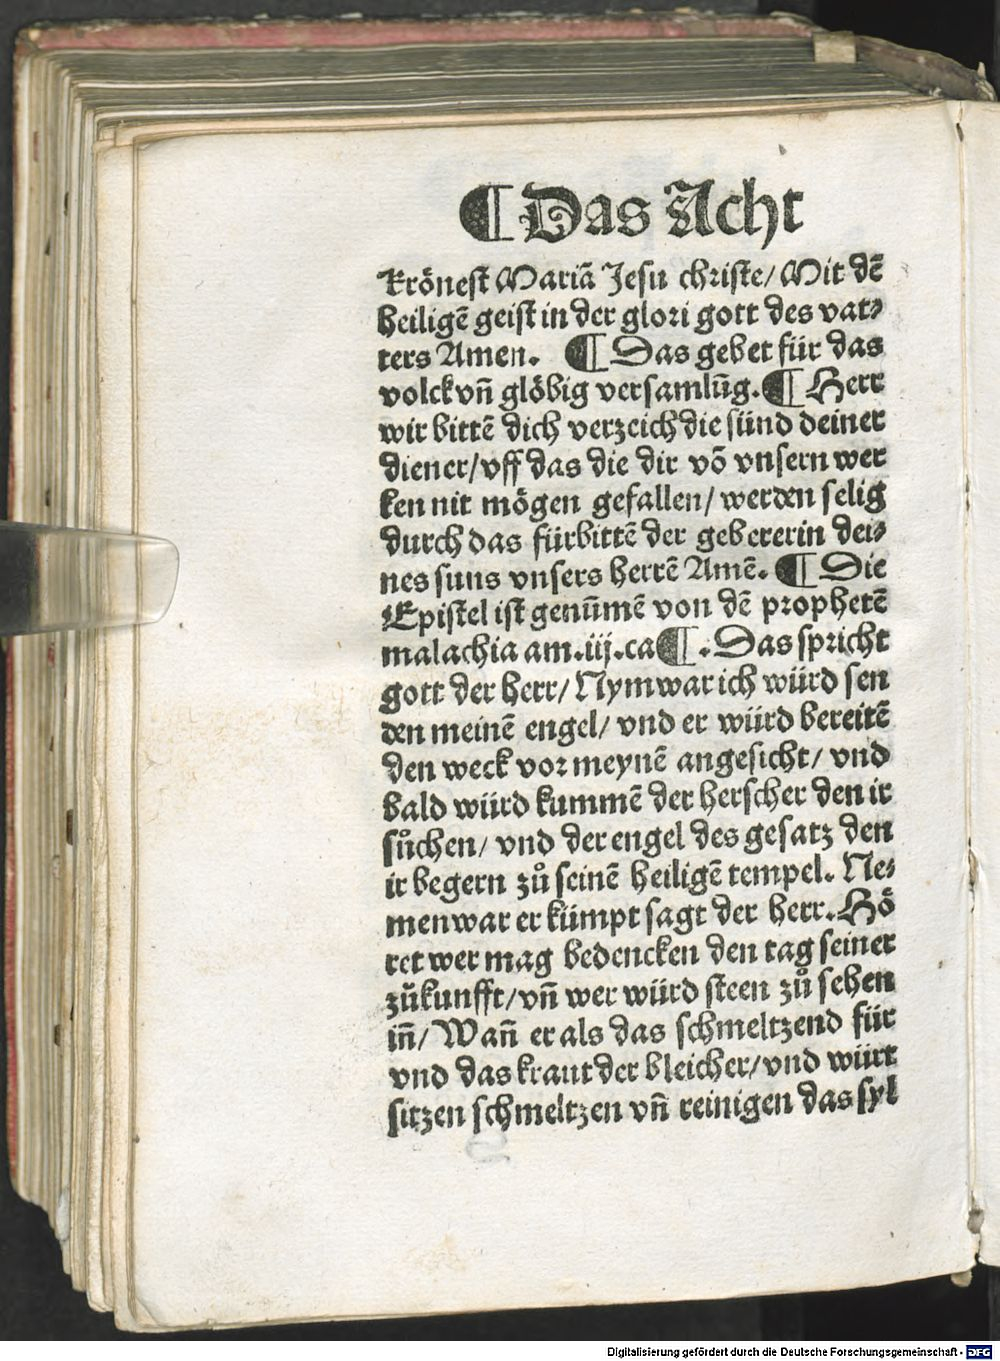 ¶ Das Acht
krönest Mariā Jesu christe/ Mit dē
heiligē geist in der glori gott des vat⸗
ters Amen. ¶ Das gebet für das
volck vn̄ glöbig versamlūg. ¶ Herr
wir bittē dich verzeich die sünd deiner
diener/ vff das die dir vō vnsern wer
ken nit mögen gefallen/ werden selig
durch das fürbittē der gebererin dei⸗
nes suns vnsers herrē Amē. ¶ Die
Epistel ist genūmē von dē prophetē
malachia am .iij. ca ¶. Das spricht
gott der herr/ Nym war ich würd sen
den meinē engel/ vnd er würd bereitē
den weck vor meynē angesicht/ vnd
bald würd kummē der herscher den ir
sůchen/ vnd der engel des gesatz den
ir begern zů seinē heiligē tempel. Ne⸗
men war er kümpt sagt der herr. Hö
ret wer mag bedencken den tag seiner
zůkunfft/ vn̄ wer würd steen zů sehen
in̄/ Wan̄ er als das schmeltzend für
vnd das kraut der bleicher/ vnd würt
sitzen schmeltzen vn̄ reinigen das syl
Digitalisierung gefördert durch die Deutsche Forschungsgemeinschaft - DFG